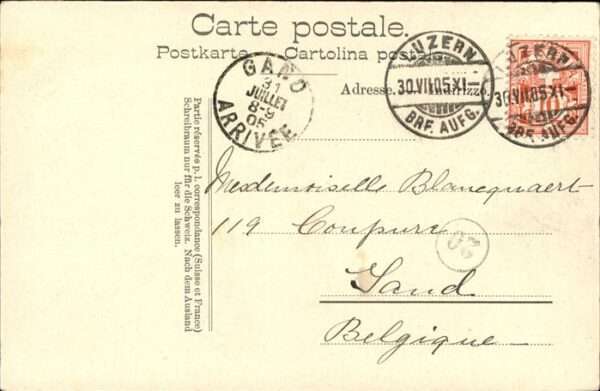 Carte postale.
Postkarte. Cartolina post
Adresse. Indirizzo.
GAND
31
JUILLET
8-9
05
ARRIVÉE
LUZERN
30.VII.05.XI-
BRF. AUFG.
LUZERN
30.VII.05.XI-
BRF. AUFG.
10
Partie réservée p. l. correspondance (Suisse et France)
Schreibraum nur für die Schweiz. Nach dem Ausland
leer zu lassen.
Mesdemoiselle Blancquaert
119 Coupure
Gand
Belgique